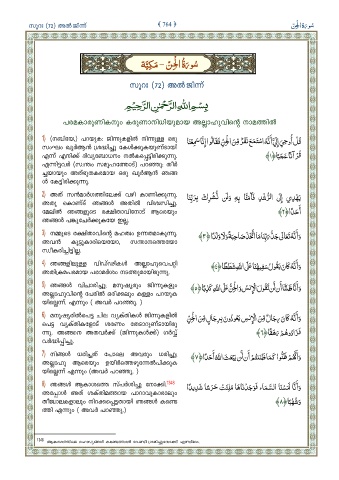 സൂറഃ (72) അൽജിന്ന്
﴾ 764 ﴿
سُورَةُ الْجِنِّ
سُورَةُ الْجِنّ - مَكِّيَّة
സൂറഃ (72) അൽ ജിന്ന്
بِسْمِ اللَّهِ الرَّحْمَٰنِ الرَّحِيمِ
പരമകാരുണികനും കരുണാനിധിയുമായ അല്ലാഹുവിന്റെ നാമത്തിൽ
1) (നബിയേ,) പറയുക: ജിന്നുകളിൽ നിന്നുള്ള ഒരു
സംഘം ഖുർആൻ ശ്രദ്ധിച്ചു കേൾക്കുകയുണ്ടായി
എന്ന് എനിക്ക് ദിവ്യബോധനം നൽകപ്പെട്ടിരിക്കുന്നു.
എന്നിട്ടവർ (സ്വന്തം സമൂഹത്തോട്) പറഞ്ഞു: തീർ
ച്ചയായും അത്ഭുതകരമായ ഒരു ഖുർആൻ ഞങ്ങ
ൾ കേട്ടിരിക്കുന്നു.
قُلْ أُوحِيَ إِلَيَّ أَنَّهُ اسْتَمَعَ نَفَرٌ مِّنَ الْجِنِّ فَقَالُوا إِنَّا سَمِعْنَا
قُرْآنًا عَجَبًا ﴿١﴾
2) അത് സന്മാർഗത്തിലേക്ക് വഴി കാണിക്കുന്നു.
അതു കൊണ്ട് ഞങ്ങൾ അതിൽ വിശ്വസിച്ചു.
മേലിൽ ഞങ്ങളുടെ രക്ഷിതാവിനോട് ആരെയും
ഞങ്ങൾ പങ്കുചേർക്കുകയേ ഇല്ല.
يَهْدِي إِلَى الرُّشْدِ فَآمَنَّا بِهِ وَلَن نُّشْرِكَ بِرَبِّنَا
أَحَدًا ﴿٢﴾
3) നമ്മുടെ രക്ഷിതാവിന്റെ മഹത്വം ഉന്നതമാകുന്നു.
അവൻ കൂട്ടുകാരിയെയോ, സന്താനത്തെയോ
സ്വീകരിച്ചിട്ടില്ല.
وَأَنَّهُ تَعَالَىٰ جَدُّ رَبِّنَا مَا اتَّخَذَ صَاحِبَةً وَلَا وَلَدًا ﴿٣﴾
4) ഞങ്ങളിലുള്ള വിഡ്ഢികൾ അല്ലാഹുവെപറ്റി
അതിക്രമപരമായ പരാമർശം നടത്തുമായിരുന്നു.
وَأَنَّهُ كَانَ يَقُولُ سَفِيهُنَا عَلَى اللَّهِ شَطَطًا ﴿٤﴾
5) ഞങ്ങൾ വിചാരിച്ചു: മനുഷ്യരും ജിന്നുകളും
അല്ലാഹുവിന്റെ പേരിൽ ഒരിക്കലും കള്ളം പറയുക
യില്ലെന്ന്. എന്നും ( അവർ പറഞ്ഞു. )
وَأَنَّا ظَنَنَّا أَن لَّن تَقُولَ الْإِنسُ وَالْجِنُّ عَلَى اللَّهِ كَذِبًا ﴿٥﴾
6) മനുഷ്യരിൽപെട്ട ചില വ്യക്തികൾ ജിന്നുകളിൽ
പെട്ട വ്യക്തികളോട് ശരണം തേടാറുണ്ടായിരു
ന്നു. അങ്ങനെ അതവർക്ക് (ജിന്നുകൾക്ക്) ഗർവ്വ്
വർദ്ധിപ്പിച്ചു.
وَأَنَّهُ كَانَ رِجَالٌ مِّنَ الْإِنسِ يَعُوذُونَ بِرِجَالٍ مِّنَ الْجِنِّ
فَزَادُوهُمْ رَهَقًا ﴿٦﴾
7) നിങ്ങൾ ധരിച്ചത് പോലെ അവരും ധരിച്ചു
അല്ലാഹു ആരെയും ഉയിർത്തെഴുന്നേൽപിക്കുക
യില്ലെന്ന് എന്നും (അവർ പറഞ്ഞു. )
وَأَنَّهُمْ ظَنُّوا كَمَا ظَنَنتُمْ أَن لَّن يَبْعَثَ اللَّهُ أَحَدًا ﴿٧﴾
8) ഞങ്ങൾ ആകാശത്തെ സ്പർശിച്ചു നോക്കി.
അപ്പോൾ അത് ശക്തിമത്തായ പാറാവുകാരാലും
തീജ്വാലകളാലും നിറക്കപ്പെട്ടതായി ഞങ്ങൾ കണ്ടെ
ത്തി എന്നും ( അവർ പറഞ്ഞു.)
وَأَنَّا لَمَسْنَا السَّمَاءَ فَوَجَدْنَاهَا مُلِئَتْ حَرَسًا شَدِيدًا
وَشُهُبًا ﴿٨﴾